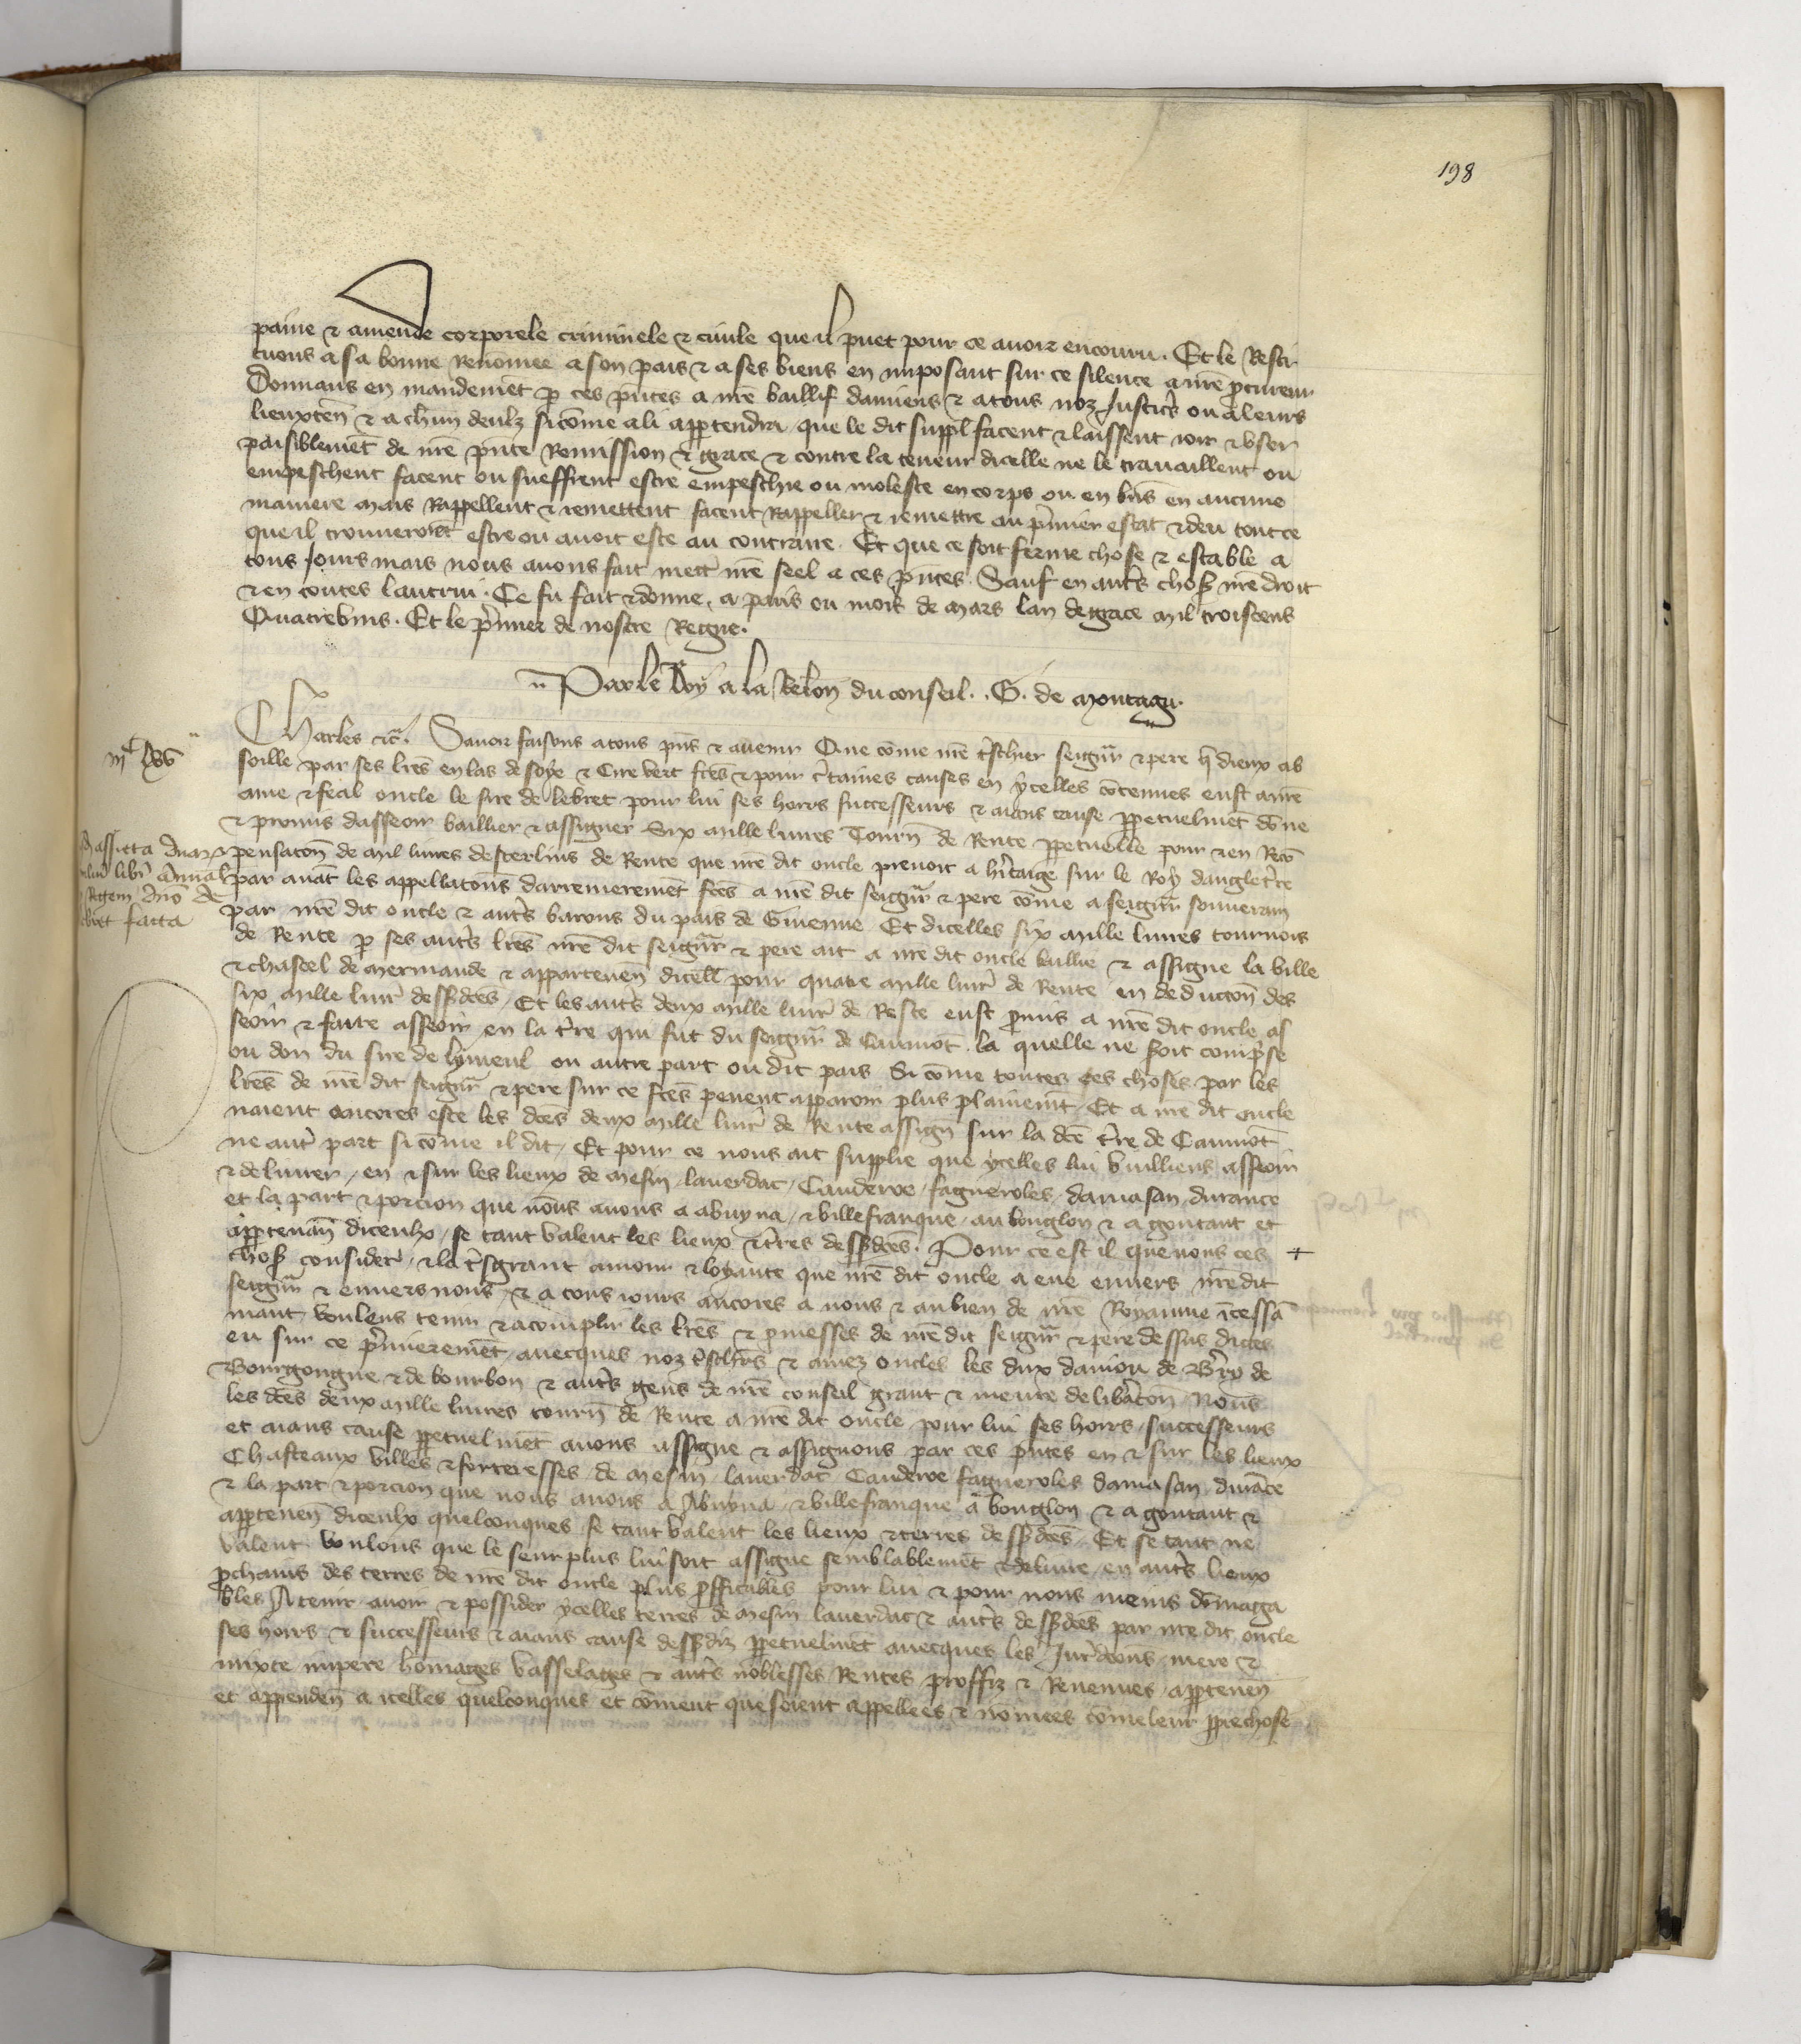 198
paine & amende corporele criminele & ciuile que il puet pour ce auoir encouru. Et le Resti
tuons a sa bonne Renomee a son pais & a ses biens en imposant sur ce silence a nrē p̄cureur
Donnans en mandemēt p̱ ces pn̄tes a nrē baillif damiens & a tous noz Justicr̄s ou a leurs
lieuxten̄ & a chūn deulz sicōme a li app̱tendra que le dit suppl facent & laissent ioir & vser
paisiblemēt de nrē pn̄te Remission & grace & contre la teneur dicelle ne le trauaillent ou
empeschent facent ou sueffrent estre empeschie ou moleste en corps ou en bn̄s en aucune
maniere mais Rappellent & remettent facent Rappeller & remettre au p̄mier estat & deu tout ce
que il trouueroient estre ou auoir este au contraire. Et que ce soit ferme chose & estable a
tous Jours mais nous auons fait mett̄ nrē seel a ces pn̄tes. Sauf en aut̄s choses nrē droit
& en toutes lautrui. Ce fu fait & donne a paris ou mois de mars lan de grace mil troiscens
Quatrevins. Et le p̄mier de nostre Regne.
Par le Roy a la Relon̄ du conseil. G. de montagu.
Charles &c̄. Sauoir faisons a tous pn̄s & auenir Que cōme nrē t̄schier seigūr & pere q̄ dieux ab
soille par ses lrēs en las de soye & Cire vert fcēs & pour c̄taines causes en ycelles cōtenues eust a nrē
ame & feal oncle le sire de lebret pour lui ses hoirs successeurs & aians cause p̱petuelmēt dōne
& promis dasseoir baillier & assigner Six mille liures Tourn̄ de Rente p̱petuelle pour & en Recō
pensacon̄ de mil liures desterlins de Rente que nrē dit oncle prenoit a h̄itaige sur le Roy danglet̄re
par auāt les appellacōns darrenieremēt fcēs a nrē dit seigūr & pere cōme a seigūr souuerain
par nrē dit oncle & aut̄s barons du pais de Guienne Et dicelles six mille liures tournois
de Rente p̱ ses aut̄s lrēs nrē dit seigūr & pere ait a nrē dit oncle baillie & assigne la ville
& chastel de mermande & appartenen̄ dicell̄ pour quatre mille liur̄ de Rente en deduccon̄ des
six mille liur̄ dessusdcēs, Et les aut̄s deux mille liur̄ de Reste eust p̄mis a nrē dit oncle as
seoir & faire asseoir en la t̄re qui fut du seigūr de Caumōt la quelle ne soit comp̄se
ou don du sire de lymeul ou autre part ou dit pais Si cōme toutes ces choses par les
lrēs de nrē dit seigūr & pere sur ce fcēs peuent apparoir plus plainemt̄ Et a nrē dit oncle
naient encores este les dcēs deux mille liur̄ de Rente assign̄ sur la dcē t̄re de Caumōt
ne aut̄ part si cōme il dit, Et pour ce nous ait supplie que ycelles lui vuilliens asseoir
& deliurer, en & sur les lieux de mesin, lauerdac, Cauderoe, fagueroles, damasan, durance
et la part & porcion que nous auons a abuyna, & villefranque, au bouglon & a gontaut et
app̱tenan̄ diceulx, se tant valent les lieux & t̄res dessusdcēs. Pour ce est il que nous ces +
choses consider̄, & la t̄sgrant amour & loyaute que nrē dit oncle a eue enuers nrē dit
seigūr & enuers nous, & a tous iours ancores a nous & au bien de nrē Royaume īcessā
mant, voulens tenir & acomplir les lrēs & p̄messes de nrē dit seigūr & pere dessus dictes
eu sur ce p̄mieremēt, auecques noz t̄schrs & amez oncles les dux daniou de B̄ry de
Bourgongne & de bourbon & aut̄s gens de nrē conseil grant & meure delib̄acon̄ Nous
les dcēs deux mille liures tourn̄ de Rente a nrē dit oncle pour lui ses hoirs, successeurs
et aians cause p̱petuelmēt auons assigne & assignons par ces pn̄tes en & sur les lieux
Chasteaux villes & forteresses de mesin, lauerdac, Cauderoe fagueroles damasan durāce
& la part & porcion que nous auons a Abuyna, & villefranque a bouglon & a gontaut &
app̱tenen̄ diceulx quelconques se tant valent les lieux & terres dessusdcēs, Et se tant ne
valent voulons que le seurplus lui soit assigne semblablemēt & deliure, en aut̄s lieux
p̄chains des terres de nrē dit oncle plus p̄ffitables pour lui & pour nous meins dōmaga
bles A tenir, auoir & possider ycelles terres de mesin lauerdac & aut̄s dessusdcēs par nrē dit oncle
ses hoirs & successeurs & aians cause dessusdiz p̱petuelmēt auecques les Jur̄dcōns, mere &
mixte impere hōmages vasselages & aut̄s noblesses, Rentes, proffiz & Reuenues, app̱tenen̄
et appenden̄ a icelles quelconques et cōment que soient appellees & nōmees cōme leur p̱pre chose
Assieta duarū
milium libr̄ annual
Regem dnō de
lebret facta